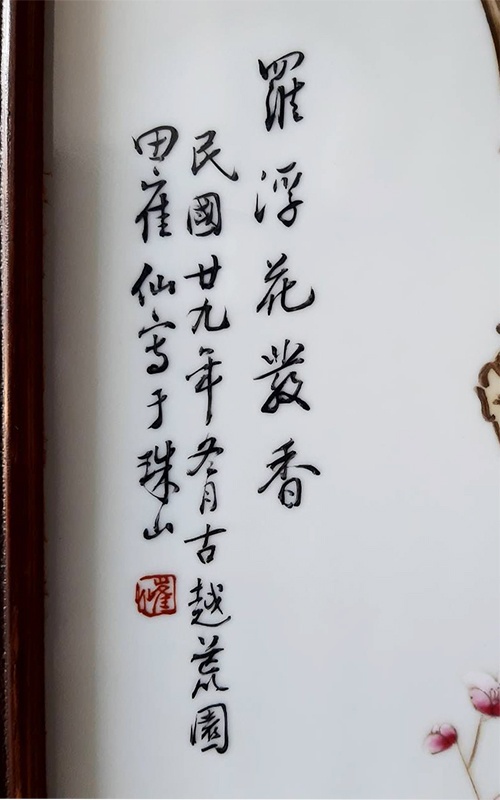 羅浮花發香
民國廿九年冬月古越荒園
田隺仙寫于珠山